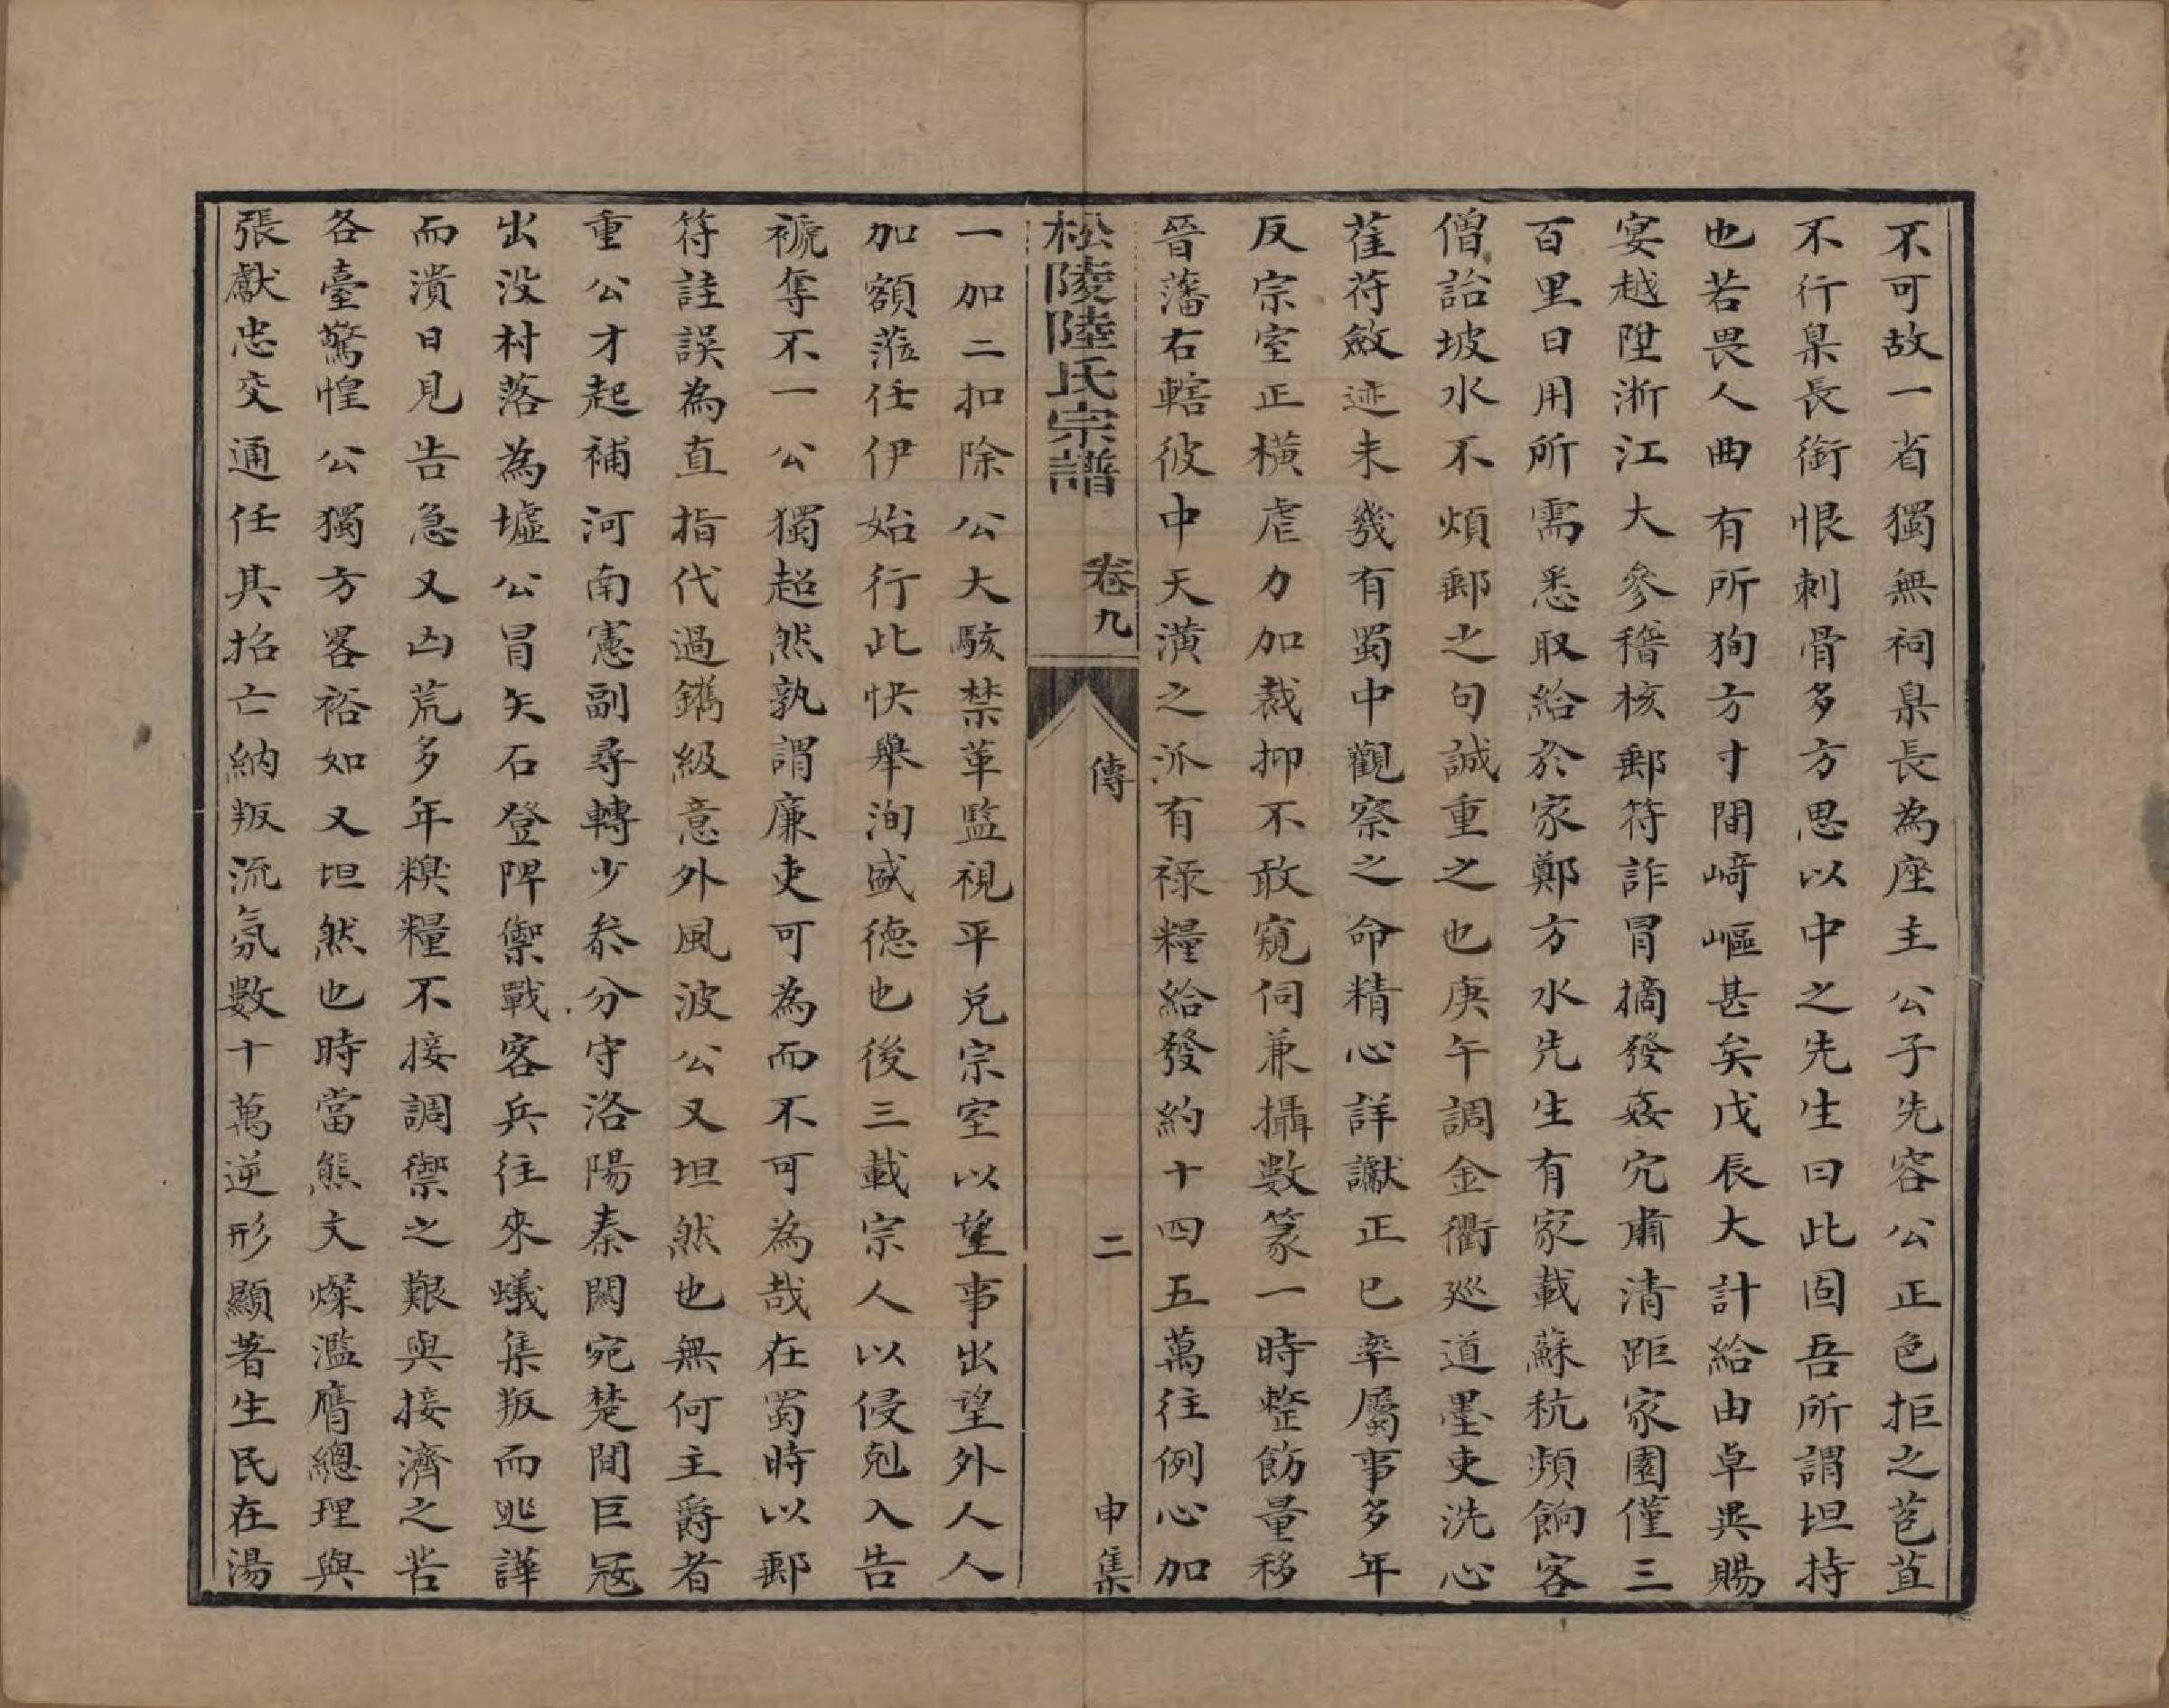 不可故一省獨無祠臬長為座主公子先容公正色拒之苞苴
不行臬長銜恨刺骨多方思以中之先生曰此固吾所謂坦持
也若畏人曲有所狥方寸間﨑嶇甚矣戊辰大計給由卓異賜
宴越陞浙江大參稽核郵符詐冒摘發姦宄肅清距家園僅三
百里日用所需悉取給於家鄭方水先生有家載蘇秔頻餉客
僧詒坡水不煩郵之句誠重之也庚午調金衢廵道墨吏洗心
萑苻斂迹未幾有蜀中觀察之命精心詳讞正巳率屬事多年
反宗室正橫虐力加裁抑不敢窺伺兼攝數篆一時整飭量移
晉藩右轄彼中天潢之派有祿糧給發約十四五萬往例心加
松陵陸氏宗譜　卷九　傳　二　申集
一加二扣除公大駭禁革監視平兌宗室以望事出望外人人
加額蒞任伊始行此快舉洵盛德也後三載宗人以侵剋入告
褫奪不一公獨超然孰謂廉吏可為而不可為哉在蜀時以郵
符詿誤為直指代過鐫級意外風波公又坦然也無何主爵者
重公才起補河南憲副尋轉少叅分守洛陽秦闕宛楚間巨冦
出没村落為墟公冒矢石登陴禦戰客兵往來蟻集叛而逃譁
而潰日見告急又凶荒多年糗糧不接調禦之艱與接濟之苦
各臺驚惶公獨方畧裕如又坦然也時當熊文燦濫膺總理與
張獻忠交通任其招亡納叛流氛數十萬逆形顯著生民在湯